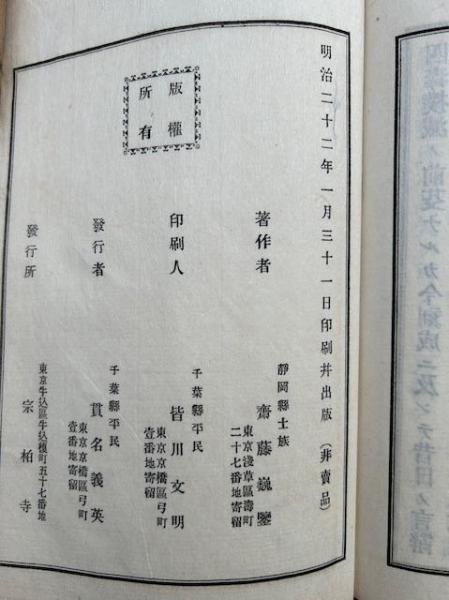 明治二十二年一月三十一日印刷并出版(非賣品)
版權
所有
著作者
靜岡縣士族
齋藤巍鑒
東京淺草區壽町
二十七番地寄留
印刷人
千葉縣平民
皆川文明
東京京橋區弓町
壹番地寄留
發行者
千葉縣平民
貫名義英
東京京橋區弓町
壹番地寄留
發行所
東京牛込區牛込榎町五十七番地
宗柏寺